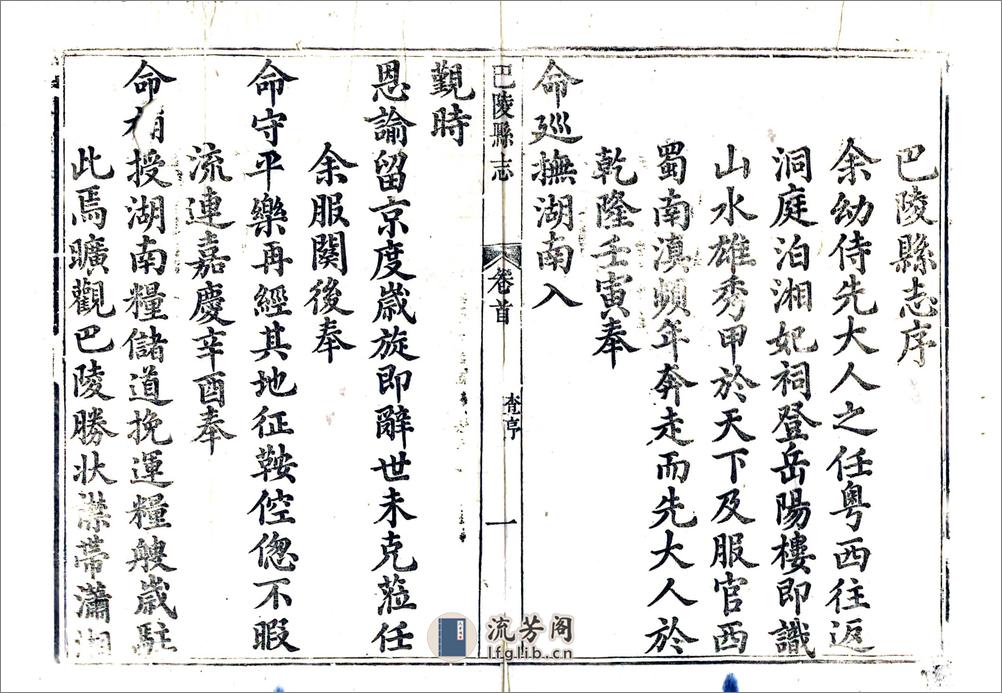 巴陵縣志序
余幼侍先大人之任粵西往返
洞庭泊湘妃祠登岳陽樓即識
山水雄秀甲於天下及服官西
蜀南滇頻年奔走而先大人於
乾隆壬寅奉
命廵撫湖南入
巴陵縣志
卷首
一
覲時
恩諭留京度歲旋即辭世未克蒞任
余服闋後奉
命守平樂再經其地征鞍倥傯不暇
流連嘉慶辛酉奉
命補授湖南糧儲道挽運糧艘歲駐
此焉曠觀巴陵勝狀襟帶瀟湘
流芳阁
lfglib.cn